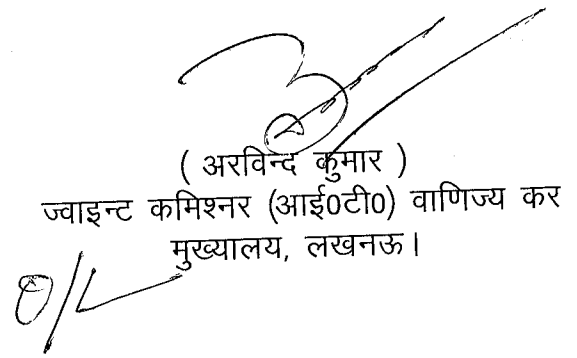 ( अरविन्द कुमार )
ज्वाइन्ट कमिश्नर (आई0टी0) वाणिज्य कर
मुख्यालय, लखनऊ।